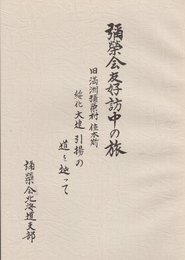 彌榮会友好訪中の旅
旧満洲彌榮村佳木斯
綏化大連引揚の
道を辿って
彌榮会北海道支部